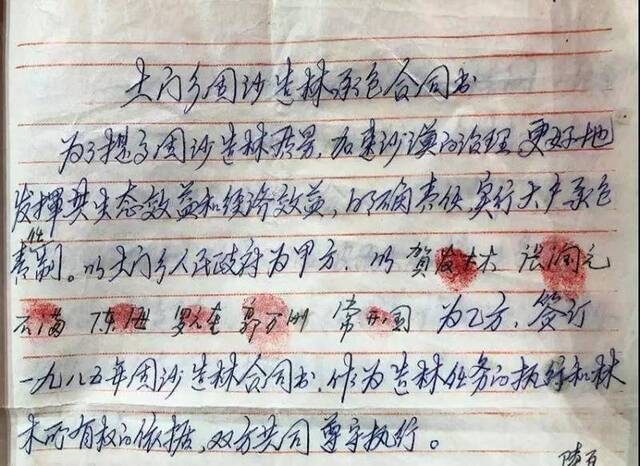 土门乡固沙造林承包合同书
为了提高固沙造林质量,加速沙漠的治理,更好地
发挥其生态效益和经济效益,明确责任,实行大户承包
责任制。以土门乡人民政府为甲方,以 贺发林 张润元
石满 陈海 罗元奎 郭万 常开国 为乙方,签订
一九八五年固沙造林合同书,作为造林任务的执行和林
木所有权的依据,双方共同尊守执行。